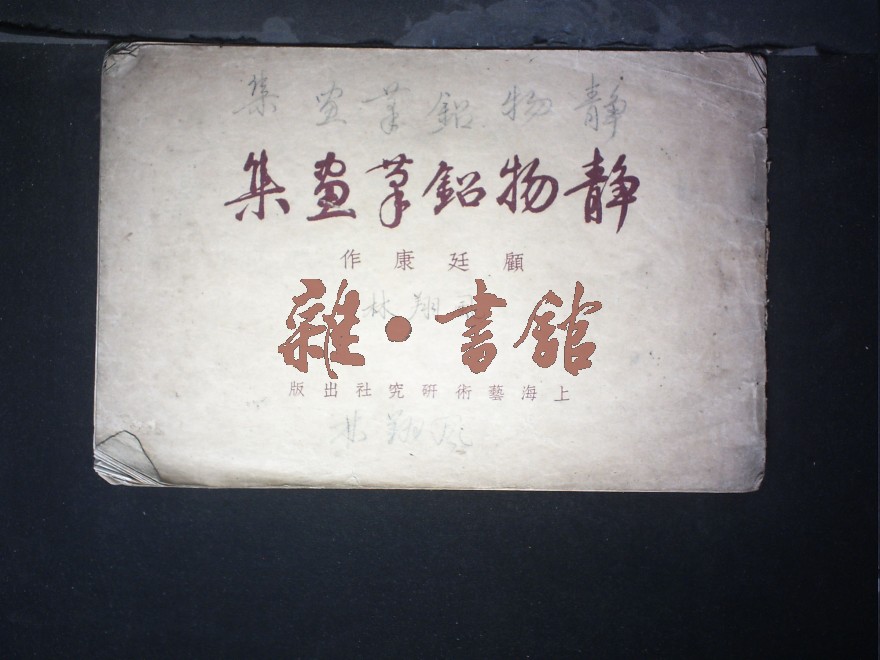 靜物鉛筆畫集
靜物鉛筆畫集
顧廷康作
林翔
雜·書館
上海藝術研究社出版
林翔